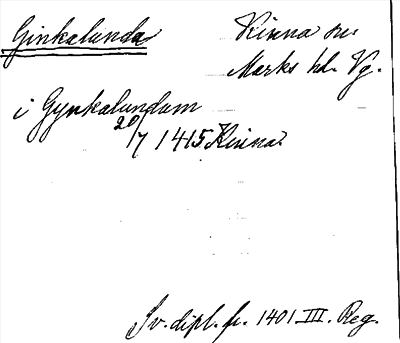 Ginkalunda
Kinna sn.
Marks hd. Vg.
i Gynkalundom
20/7 1415 Kinna
Sv. dipl. fr. 1401 III. Reg.